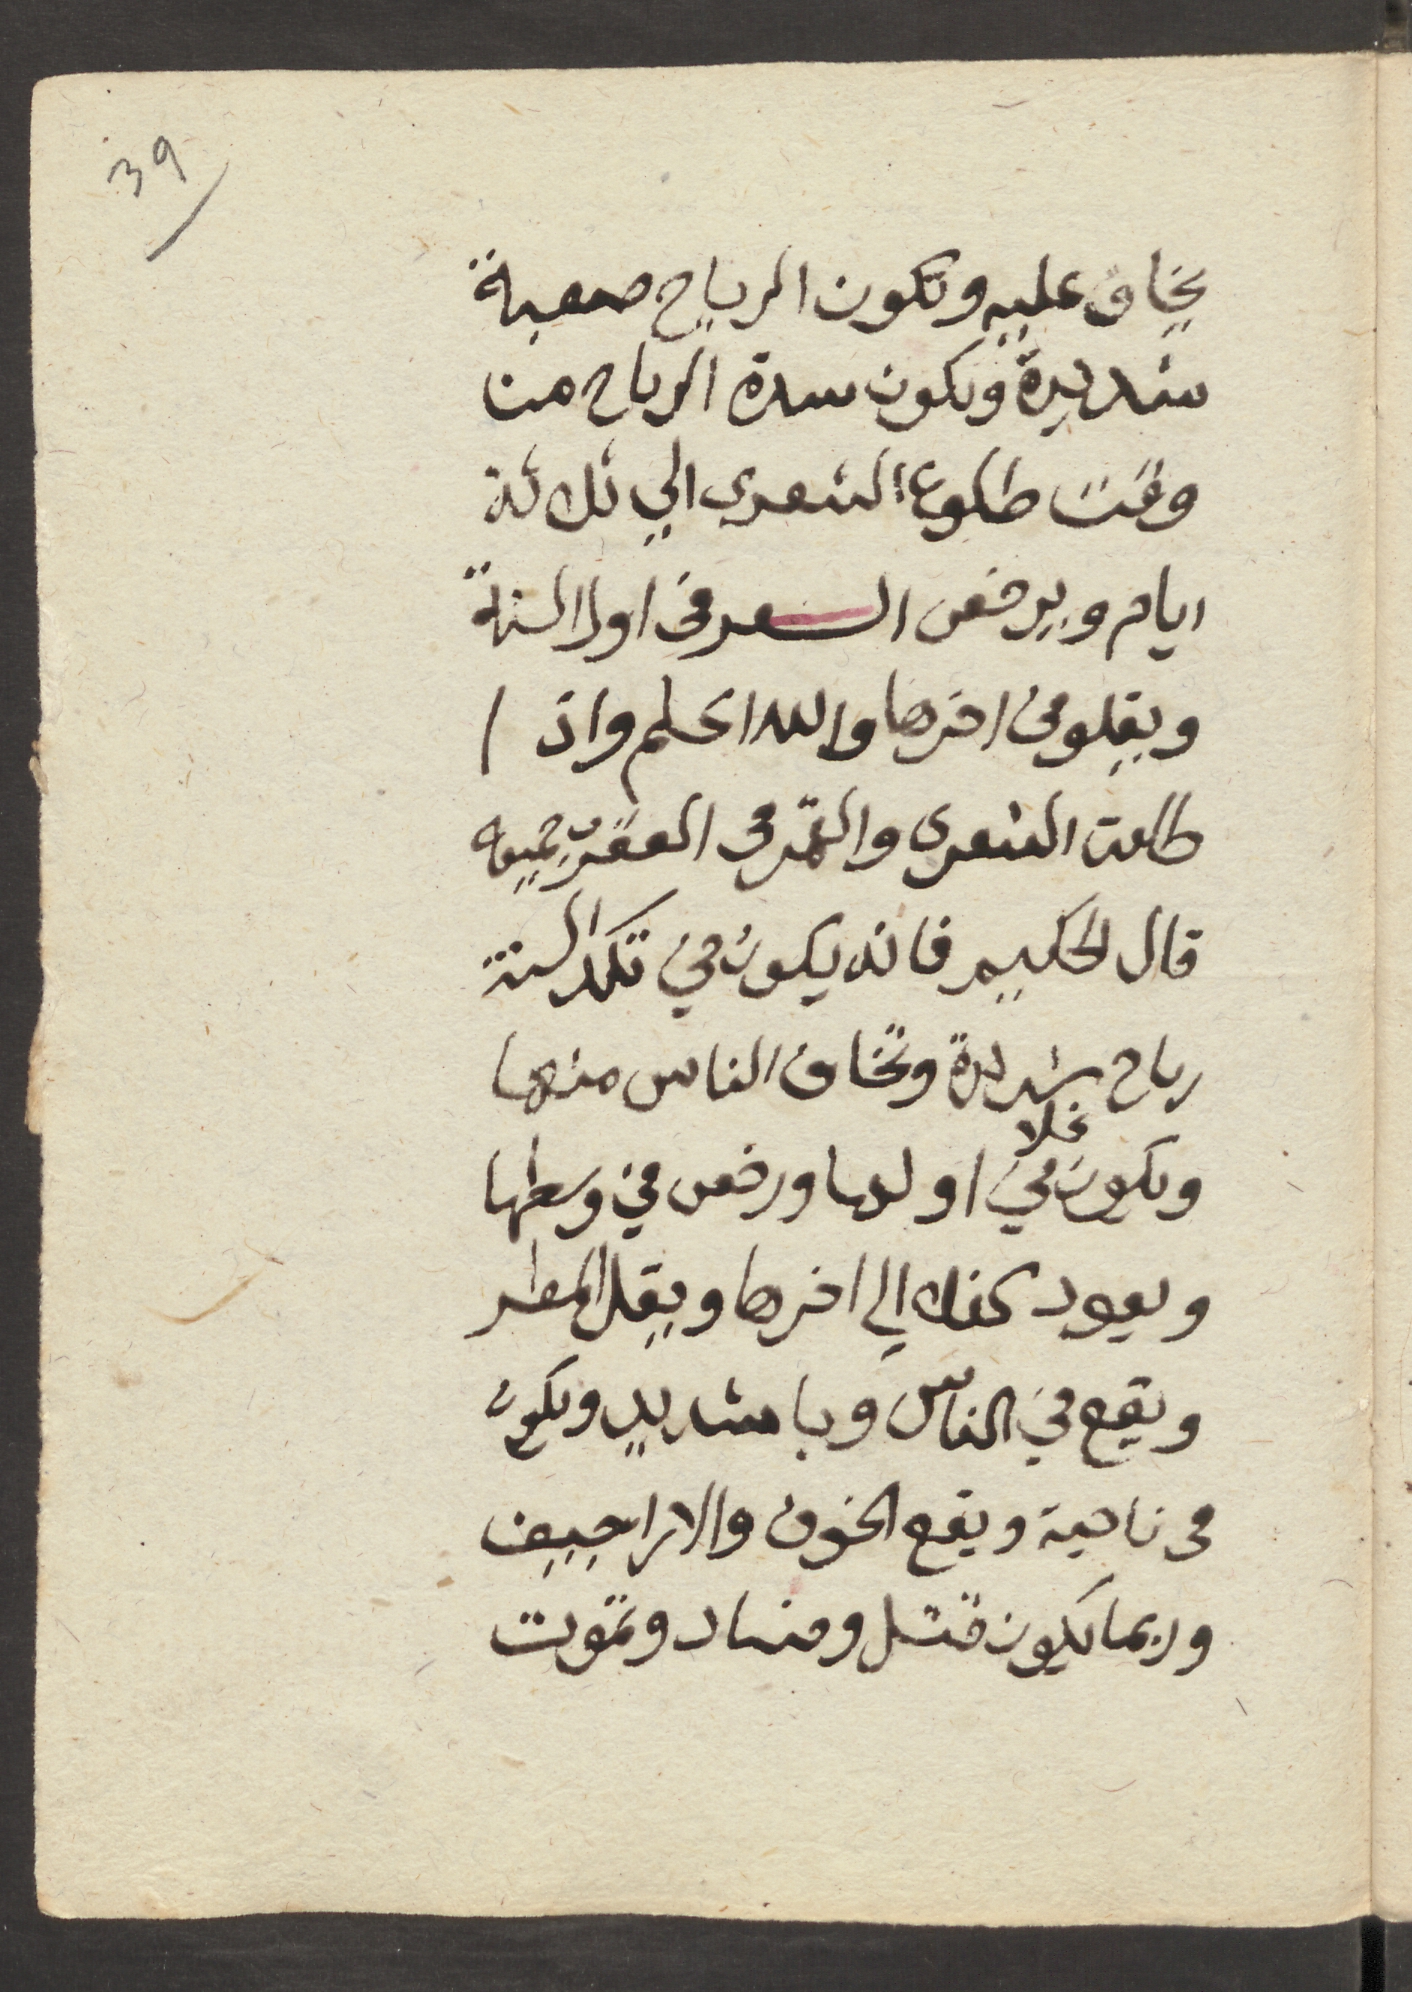 39
يخاف عليه وتكون الرياح صعبة
شديدة ويكون شدة الرياح من
وقت طلوع الشعري الي ثلاثة
ايام ويرخص السعر في اول السنة
ويغلو في اخرها والله اعلم واذا
طلعت الشعري والقمر في العقرب
قال الحكيم فانه يكون في تلك السنة
رياح شديدة وتخاف الناس منها
ويكون غلا في اولها ورخص في وسطها
ويعود كذلك الي اخرها ويقل المطر
ويقع في الناس وبا شديد ويكون
في ناحية ويقع الخوف والاراجيف
وربما يكون قتل وفساد وتموت